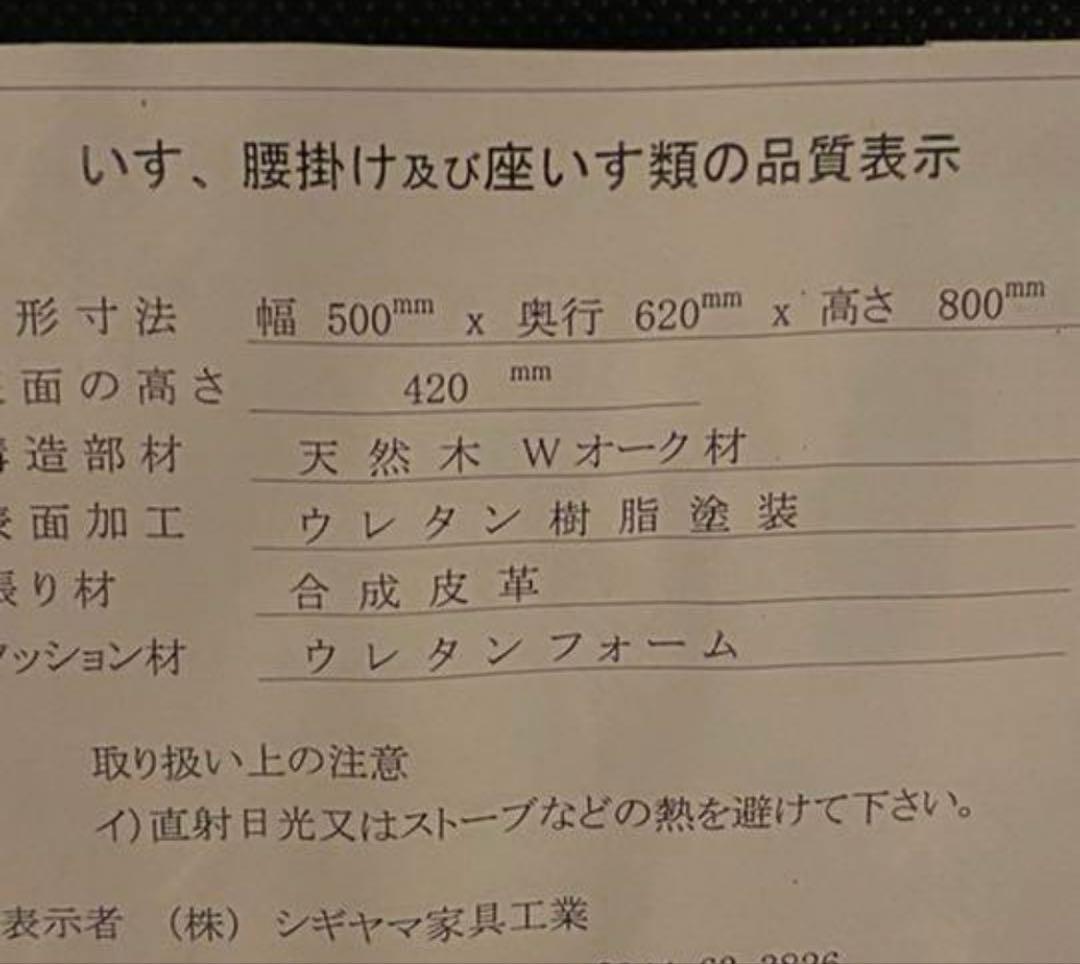 いす、腰掛け及び座いす類の品質表示
形寸法 幅 500mm x 奥行 620mm x 高さ 800mm
面の高さ 420 mm
構造部材 天然木 Wオーク材
表面加工 ウレタン樹脂塗装
張り材 合成皮革
クッション材 ウレタンフォーム
取り扱い上の注意
イ)直射日光又はストーブなどの熱を避けて下さい。
表示者 (株) シギヤマ家具工業